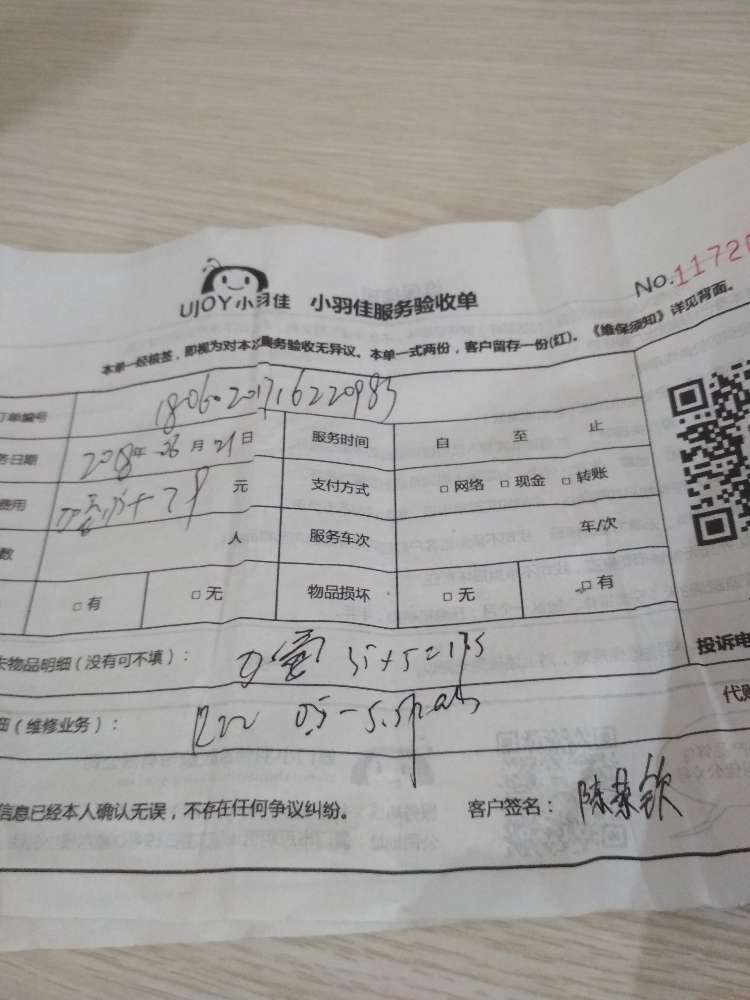 No.1172
UJOY小羽佳 小羽佳服务验收单
本单一经核签，即视为对本次服务验收无异议。本单一式两份，客户留存一份(红)。《维保须知》详见背面。
订单编号 18060201716220985
务日期 2018年 06月 21日 服务时间 自 至 止
费用 元 支付方式 □网络 □现金 □转账
数 人 服务车次 车/次
□有 □无 物品损坏 □无 □有
失物品明细（没有可不填）： 35+5=175
细（维修业务）： R22
投诉电
代账
信息已经本人确认无误，不存在任何争议纠纷。 客户签名： 陈某钦